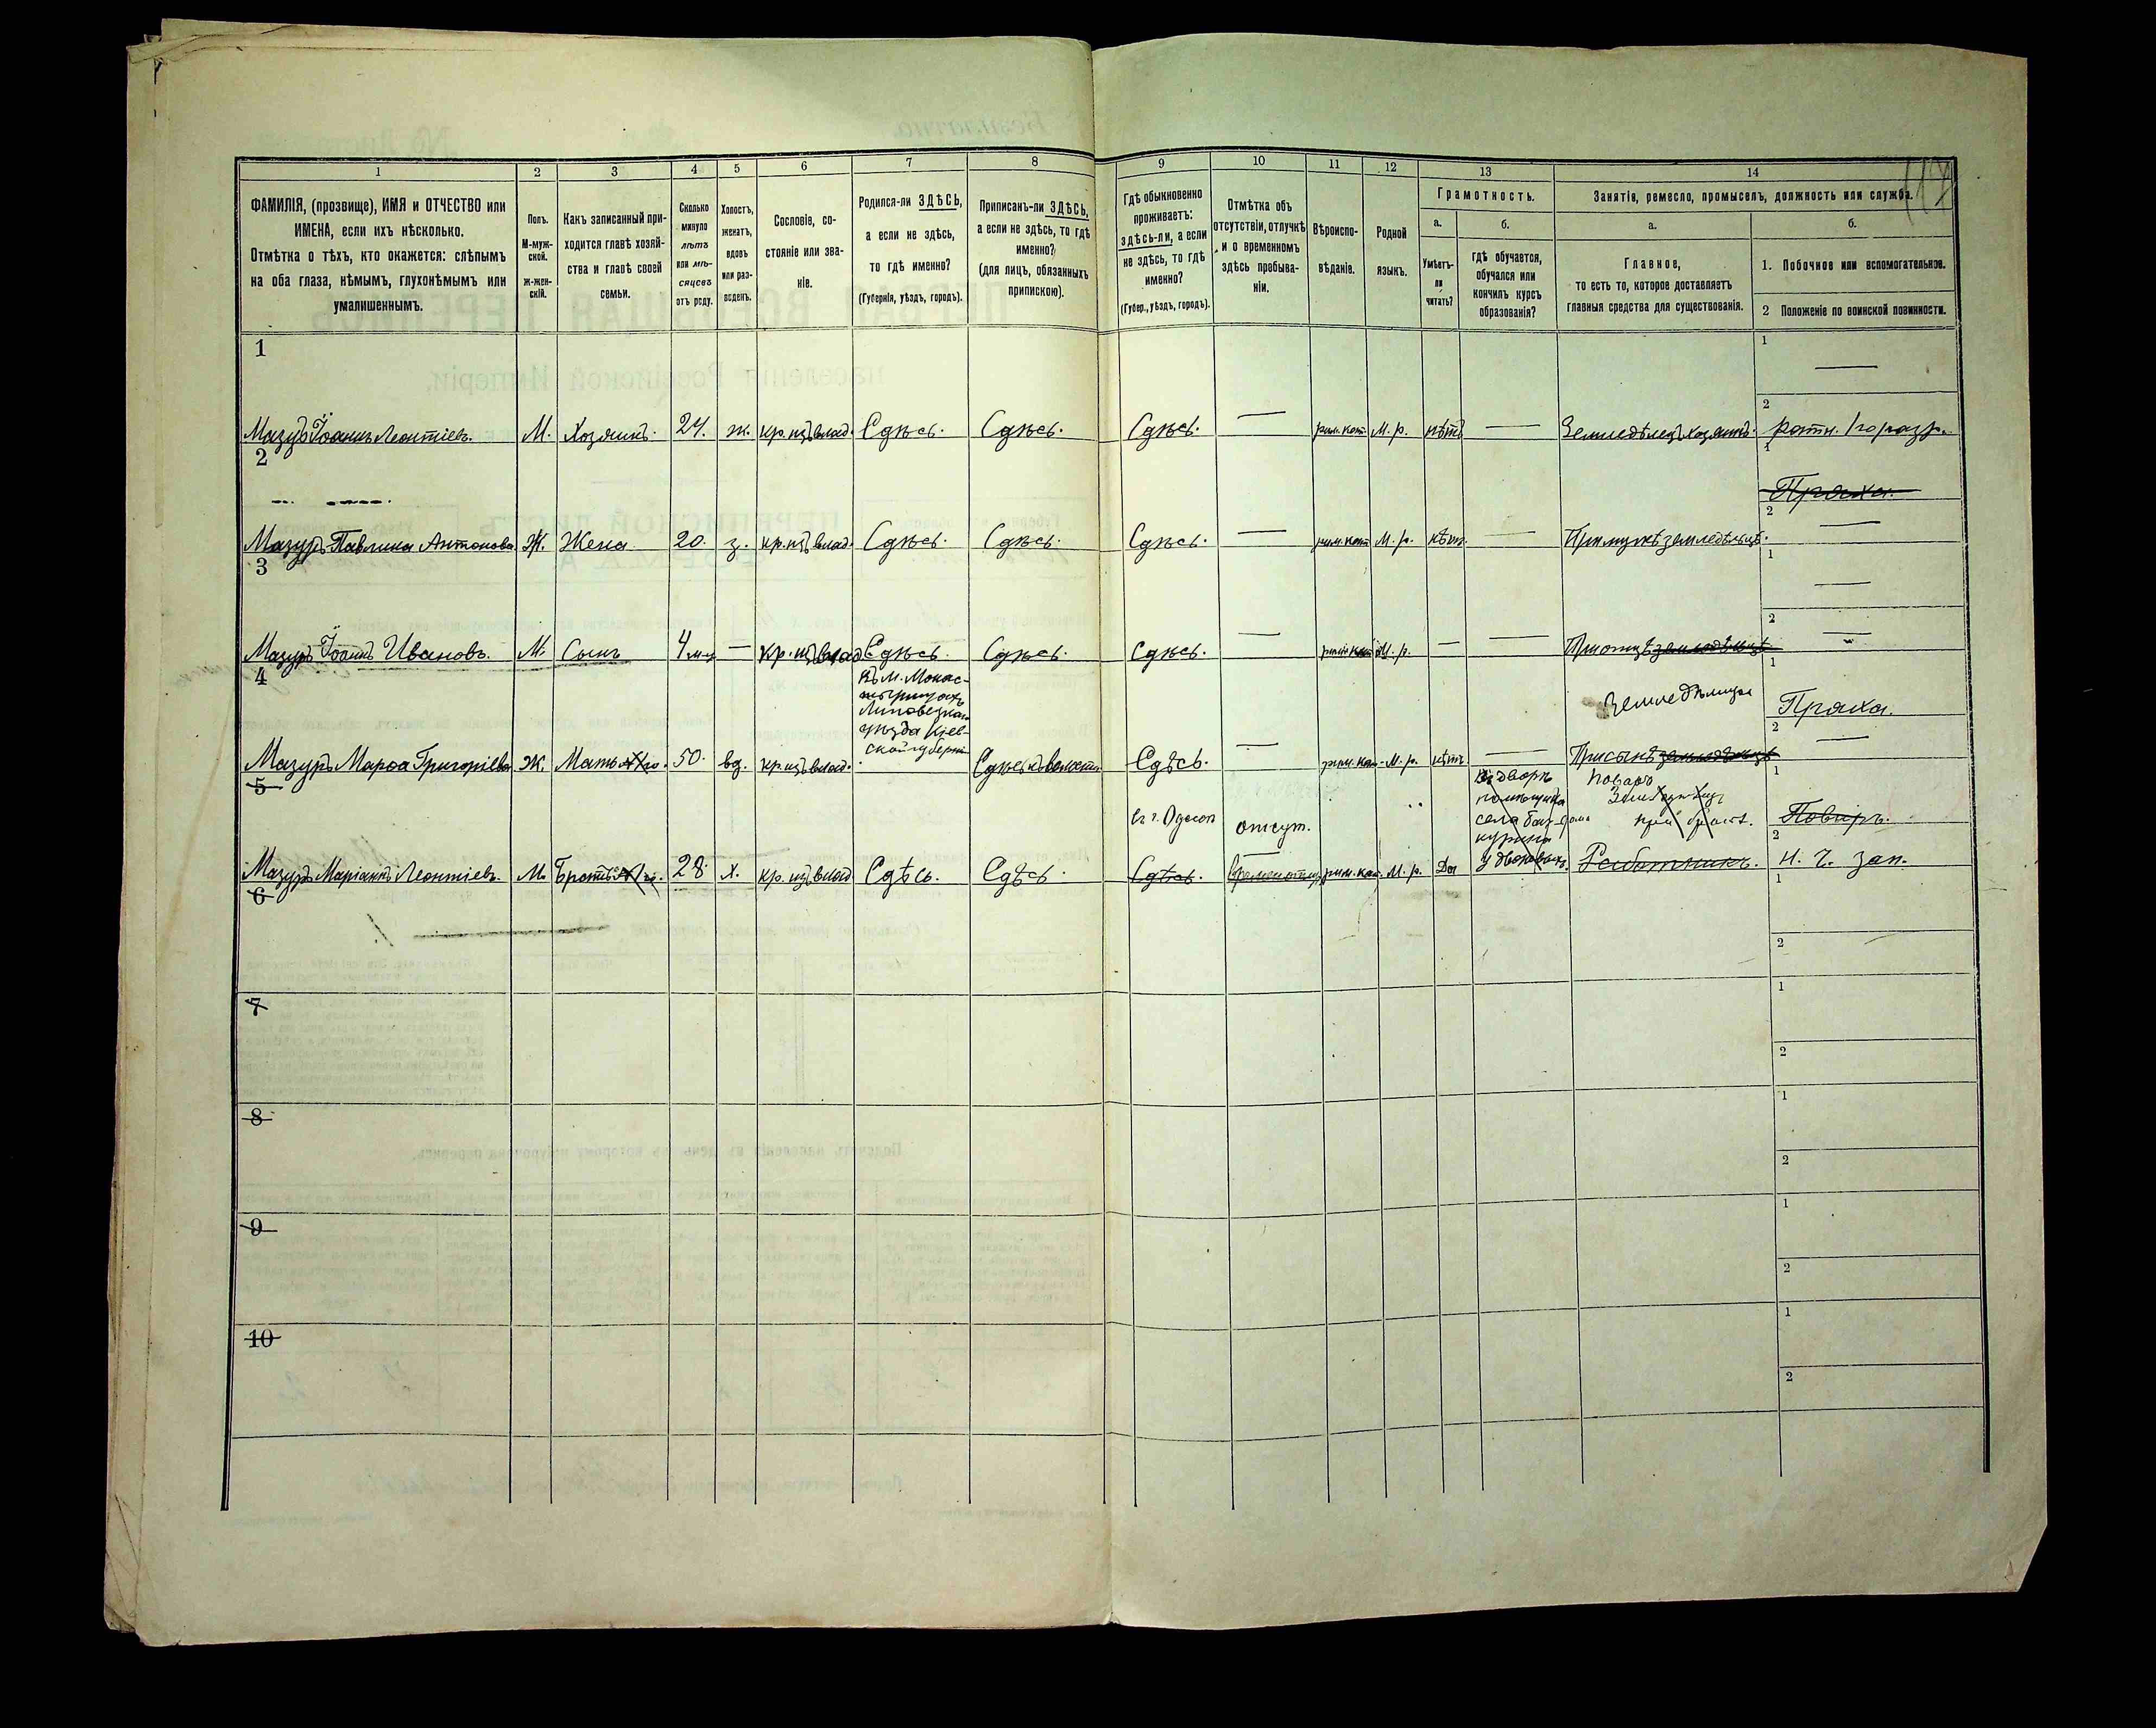 1 2 3 4 5 6 7 8 9 10 11 12 13 14
ФАМИЛІЯ, (прозвище), ИМЯ и ОТЧЕСТВО или
ИМЕНА, если ихъ нѣсколько.
Отмѣтка о тѣхъ, кто окажется: слѣпымъ
на оба глаза, нѣмымъ, глухонѣмымъ или
умалишеннымъ.
Полъ.
М-муж-
ской.
Ж-жен-
скій.
Какъ записанный при-
ходится главѣ хозяй-
ства и главѣ своей
семьи.
Сколько
минуло
лѣтъ
или мѣ-
сяцевъ
отъ роду.
Холостъ,
женатъ,
вдовъ
или раз-
веденъ.
Сословіе, со-
стояніе или зва-
ніе.
Родился-ли ЗДѢСЬ,
а если не здѣсь,
то гдѣ именно?
(Губернія, уѣздъ, городъ).
Приписанъ-ли ЗДѢСЬ,
а если не здѣсь, то гдѣ
именно?
(для лицъ, обязанныхъ
припискою).
Гдѣ обыкновенно
проживаетъ:
здѣсь-ли, а если
не здѣсь, то гдѣ
именно?
(Губер., уѣздъ, городъ).
Отмѣтка объ
отсутствіи, отлучкѣ
и о временномъ
здѣсь пребыва-
ніи.
Вѣроиспо-
вѣданіе.
Родной
языкъ.
Грамотность.
а.
Умѣетъ-
ли
читать?
б.
гдѣ обучается,
обучался или
кончилъ курсъ
образованія?
Занятія, ремесло, промыселъ, должность или служба.
а.
Главное,
то есть то, которое доставляетъ
главныя средства для существованія.
б.
1. Побочное или вспомогательное.
2 Положеніе по воинской повинности.
1
1
2
Мазуръ Іоаннъ Леонтіевъ. М. Хозяинъ. 24. ж. кр. изъ влад. Сдѣсь. Сдѣсь. Сдѣсь. — рим. кат. М. р. нѣтъ — Земледѣлецъ хозяинъ. ратн. 1го разр.
2
1 Пряха.
2
Мазуръ Павлина Антонова Ж. Жена 20. з. кр. изъ влад. Сдѣсь. Сдѣсь. Сдѣсь. — рим. кат. М. р. нѣтъ — При мужѣ земледѣльцѣ.
3
1
2
Мазуръ Іоаннъ Ивановъ. М. Сынъ 4 м-ц — кр. изъ влад Сдѣсь. Сдѣсь. Сдѣсь. — рим. кат. М. р. — — При отцѣ земледѣльцѣ
4
Въ м. Монас-
тырищахъ
Липовецкаго
уѣзда Кіев-
ской губерніи
Земледѣльцѣ
1 Пряха.
2
Мазуръ Марѳа Григоріева Ж. Мать 50. вд. кр. изъ влад. Сдѣсь. — рим. кат. М. р. нѣтъ — При сынѣ земледѣльцѣ
5
въ г. Одессѣ отсут.
Поваръ
1 Поваръ.
2
Мазуръ Маріанъ Леонтіевъ. М. Братъ 28. Х. кр. изъ влад Сдѣсь. Сдѣсь. Сдѣсь. рим. кат. М. р. Да Работникъ. Н. Ч. зап.
6
1
2
7
1
2
8
1
2
9
1
2
10
1
2